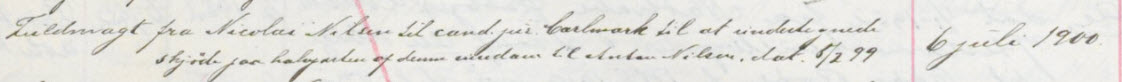 Fuldmagt fra Nicolai Nilsen til cand. jur. Carlmark til at undertegnede 6 juli 1900.
skjöde paa halvparten af denne eiendom til Anton Nilsen, dat. 5/2 99